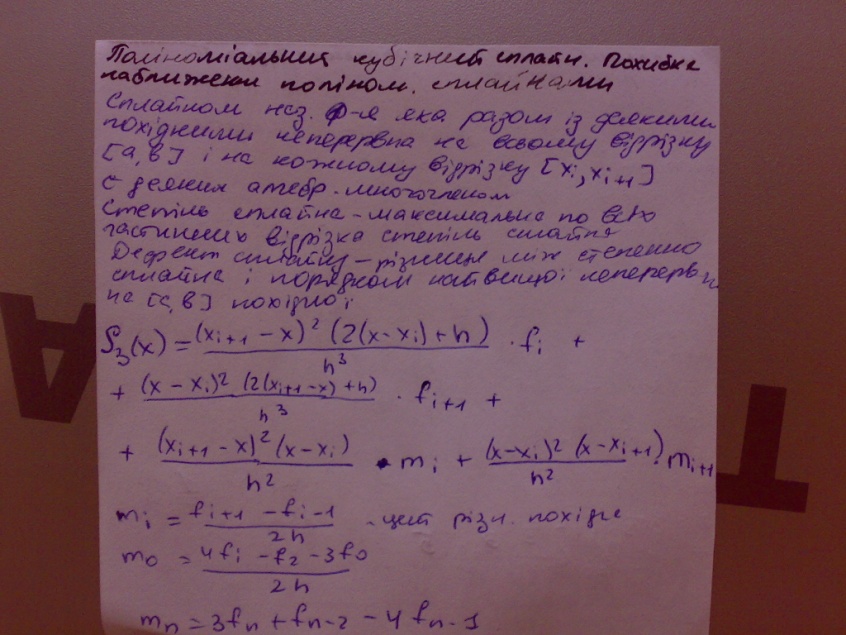 Поліноміальний кубічний сплайн. Похибка
наближення поліном. сплайнами
Сплайном наз. ф-я яка разом із деякими
похідними неперервна на всьому відрізку
[a,b] і на кожному відрізку [xi, xi+1]
є деяким алгебр. многочленом
Степінь сплайна - максимальна по всіх
частинних відрізка степінь сплайна
Дефект сплайну - різниця між степенню
сплайна і порядком найвищої неперервн
на [a,b] похідної
S3(x) = (xi+1 - x)² (2(x-xi)+h) / h³ · fi +
+ (x - xi)² (2(xi+1-x)+h) / h³ · fi+1 +
+ (xi+1 - x)² (x-xi) / h² · mi + (x-xi)² (x-xi+1) / h² mi+1
mi = fi+1 - fi-1 / 2h - цент різн. похідна
m0 = 4fi - f2 - 3f0 / 2h
mn = 3fn + fn-2 - 4fn-1
АТ